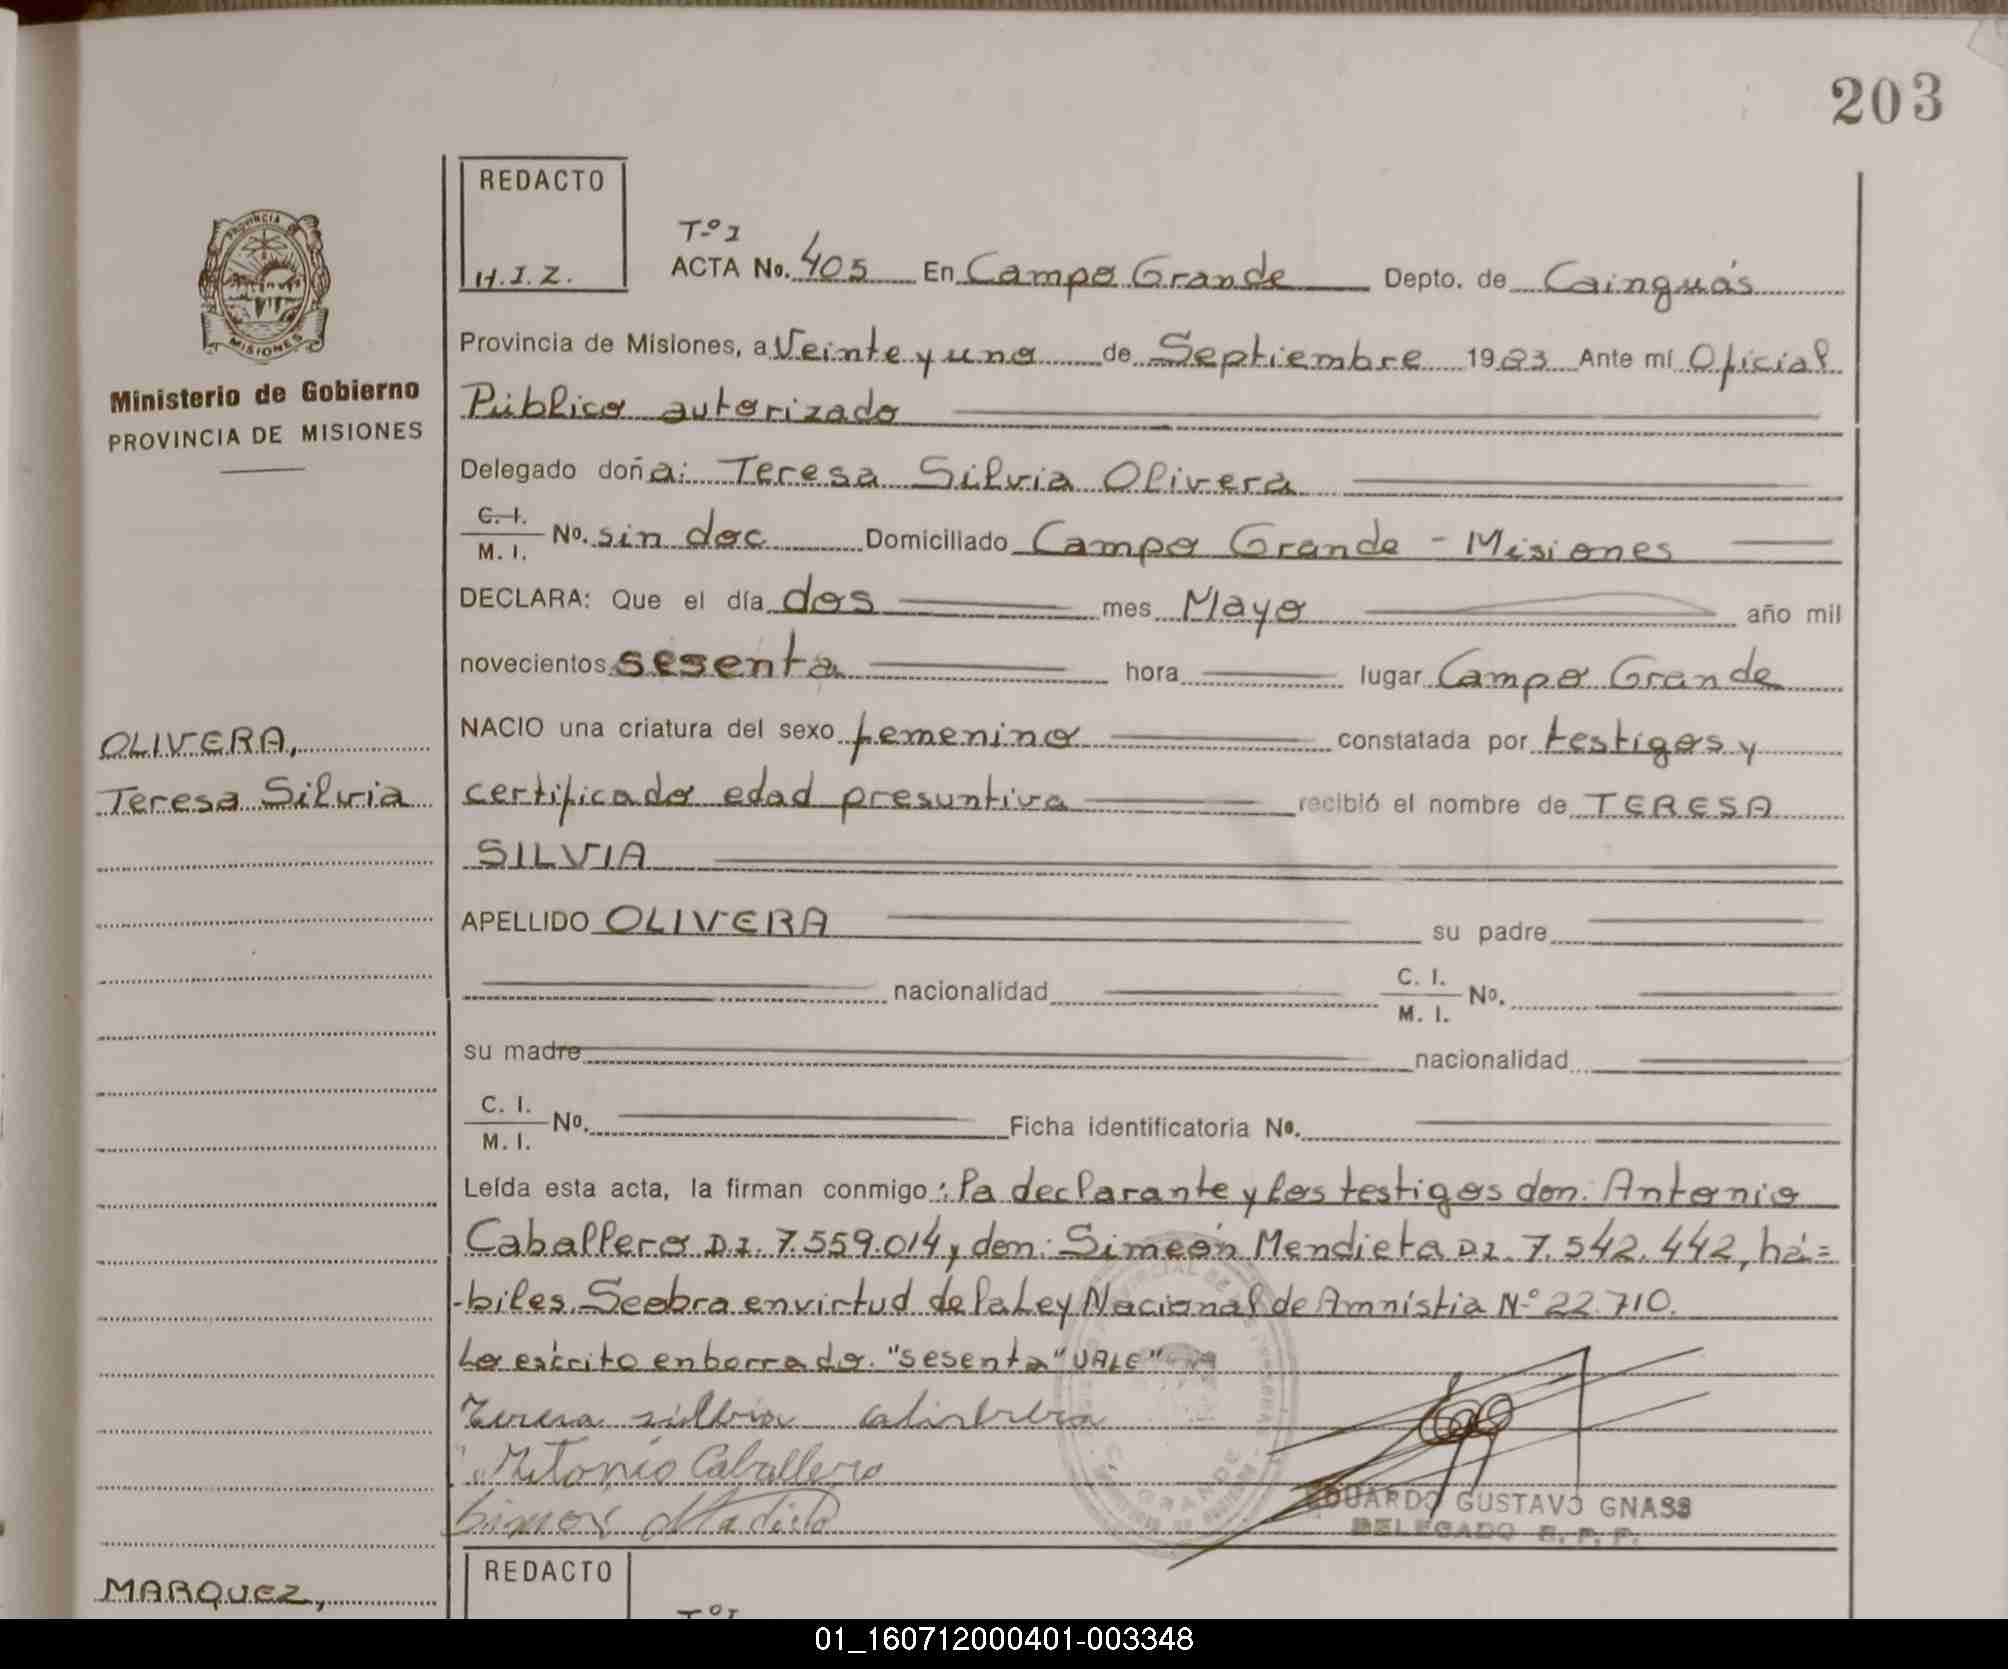 203
REDACTO
H.I.Z.
Tº I
ACTA No. 405 En Campo Grande Depto. de Cainguás
Provincia de Misiones, a Veinte y uno de Septiembre 1983 Ante mí Oficial
Público autorizado
Delegado doña: Teresa Silvia Olivera
C. I.
M. I. No. sin doc Domiciliado Campo Grande - Misiones
DECLARA: Que el día dos mes Mayo año mil
novecientos sesenta hora lugar Campo Grande
NACIO una criatura del sexo femenino constatada por testigos y
certificado edad presuntiva recibió el nombre de TERESA
SILVIA
APELLIDO OLIVERA su padre
nacionalidad C. I.
M. I. No.
su madre nacionalidad
C. I.
M. I. No. Ficha identificatoria No.
Leída esta acta, la firman conmigo: la declarante y los testigos don. Antonio
Caballero D.I. 7.559.014 y don: Simeón Mendieta D.I. 7.542.442, há=
-biles. Se obra en virtud de la Ley Nacional de Amnistia Nº 22.710.
Lo escrito en borrado. "sesenta" VALE"
Antonio Caballero
EDUARDO GUSTAVO GNASS
DELEGADO R. P. P.
PROVINCIA
MISIONES
Ministerio de Gobierno
PROVINCIA DE MISIONES
OLIVERA,
Teresa Silvia
MARQUEZ,
REDACTO
Tº I
01_160712000401-003348